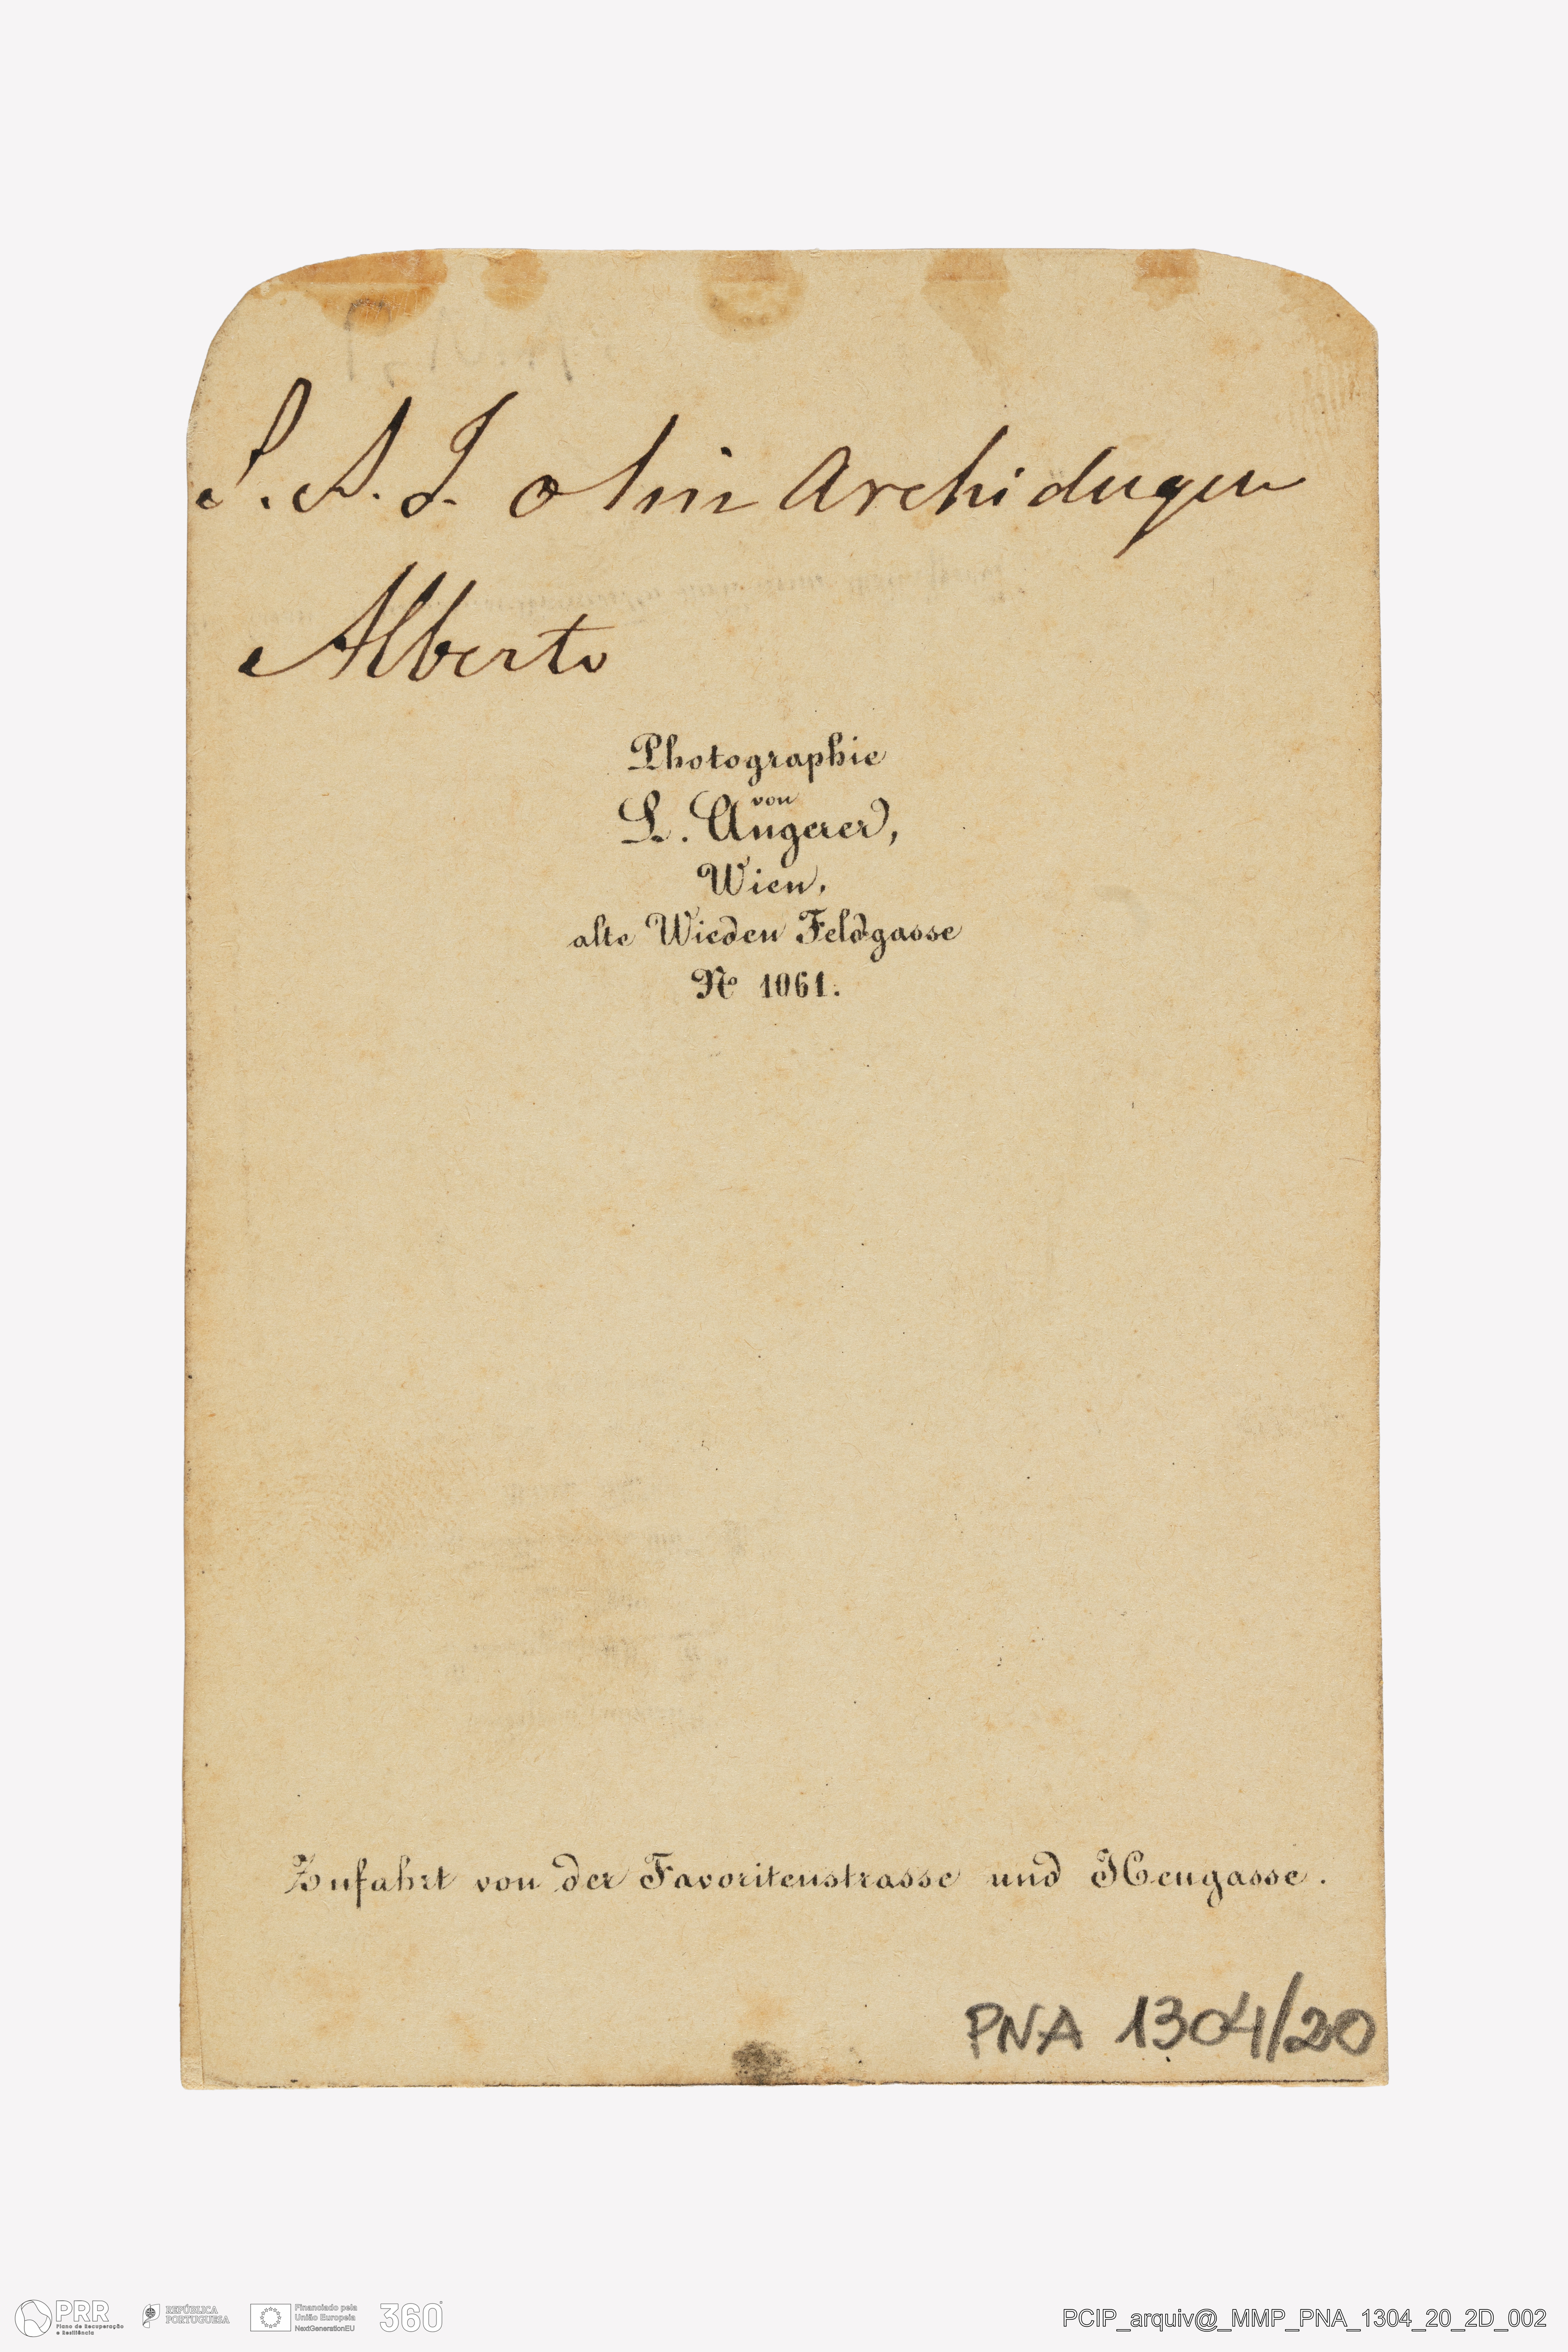 S. A. I. o Snr Archiduque
Alberto
Photographie
von
L. Angerer,
Wien,
alte Wieden Feldgasse
No 1061.
Zufahrt von der Favoritenstrasse und Heugasse.
PNA 1304/20
PRR
Plano de Recuperação
e Resiliência
REPÚBLICA
PORTUGUESA
Financiado pela
União Europeia
NextGenerationEU
360°
PCIP_arquiv@_MMP_PNA_1304_20_2D_002